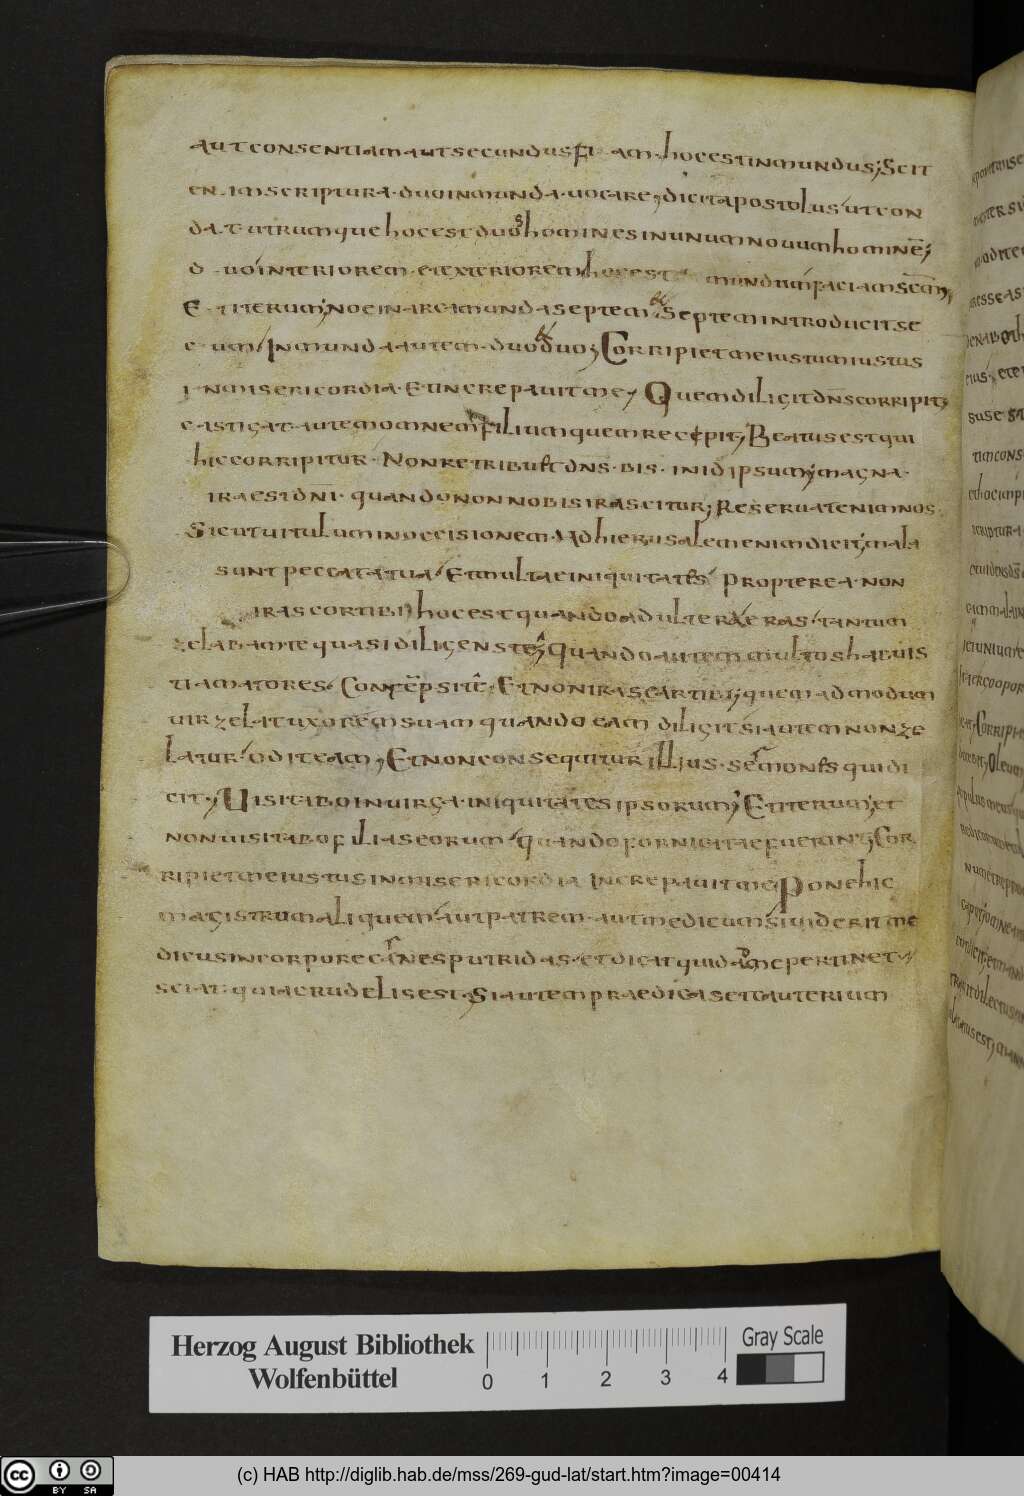 aut consentiam aut secundus fi am · hoc est in mundus; Scit
en im scriptura · duo in munda · uocare, dicit apostolus ut con
dat utrumque hoc est duos homines in unum nouum hominē;
d uo interiorem · et exteriorem hoc est mundum faciam
Et iterum; Noe in arca munda septem & septem introducit se
cum / Inmunda autem · duo & duo; Corripiet me iustus
in misericordia · Et increpauit me; Quem diligit dn̄s corripit;
castigat · autem omnem filium quem recepit; Beatus est qui
hic corripitur · Non retribuet dn̄s · bis · in id ipsum; magna ·
ira est dn̄i · quando non nobis irascitur; Reseruat enim nos
Sicut uitulum in occisionem · Ad hierusalem enim dicit; mala
sunt peccata tua / Et multae iniquitates / propterea · non
irascor tibi hoc est quando adulteraueras / tantum
zelabam te quasi diligens te; Quando autem multos habuis
ti amatores · Contēpsi tē; Et non irascar tibi; quem ad modum
uir zelat uxorem suam quando eam diligit si autem non ze
latur / odit eam; Et non consequitur illius · sermones qui di
cit; Uisitabo in uirga · iniquitates ipsorum; Et iterum; et
non uisitabo filias eorum / quando fornicatae fuerint; Cor
ripiet me iustus in misericordia increpauit me Pone hic
magistrum aliquem · aut patrem · aut medicum si uiderit me
dicus in corpore carnes putridas · et dicat quid ad me pertinet
sciat · quia crudelis est · Si autem praedicas et cauterium
Herzog August Bibliothek
Wolfenbüttel
0 1 2 3 4
Gray Scale
cc BY SA
(c) HAB http://diglib.hab.de/mss/269-gud-lat/start.htm?image=00414